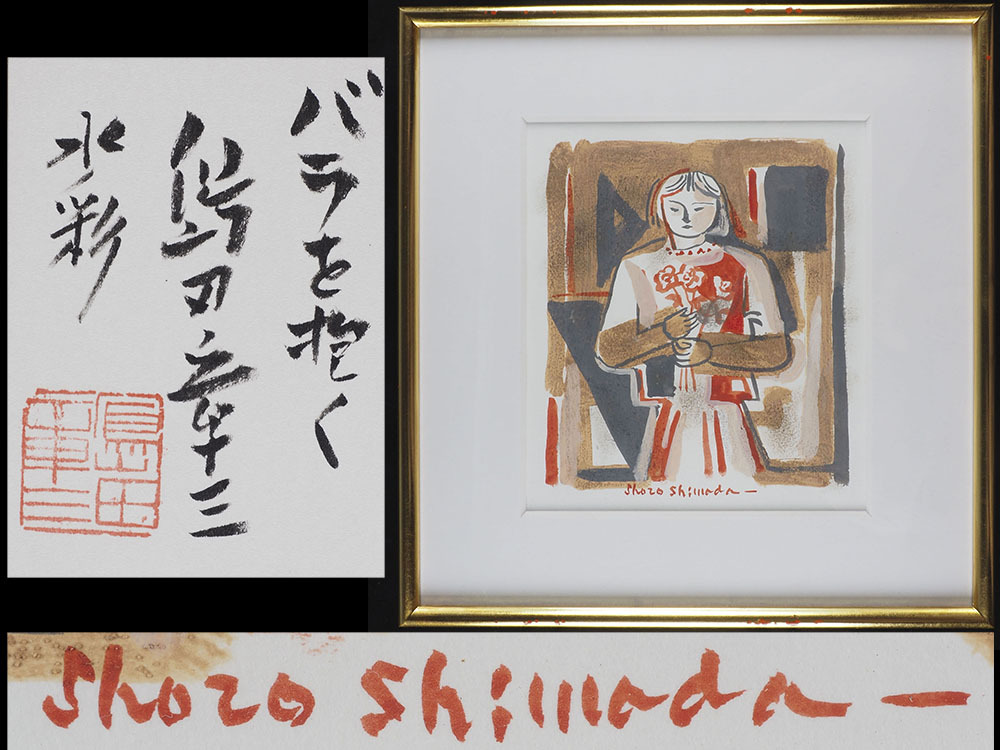 バラを抱く
島田章三
水彩
島田
章三
shozo shimada
shozo shimada